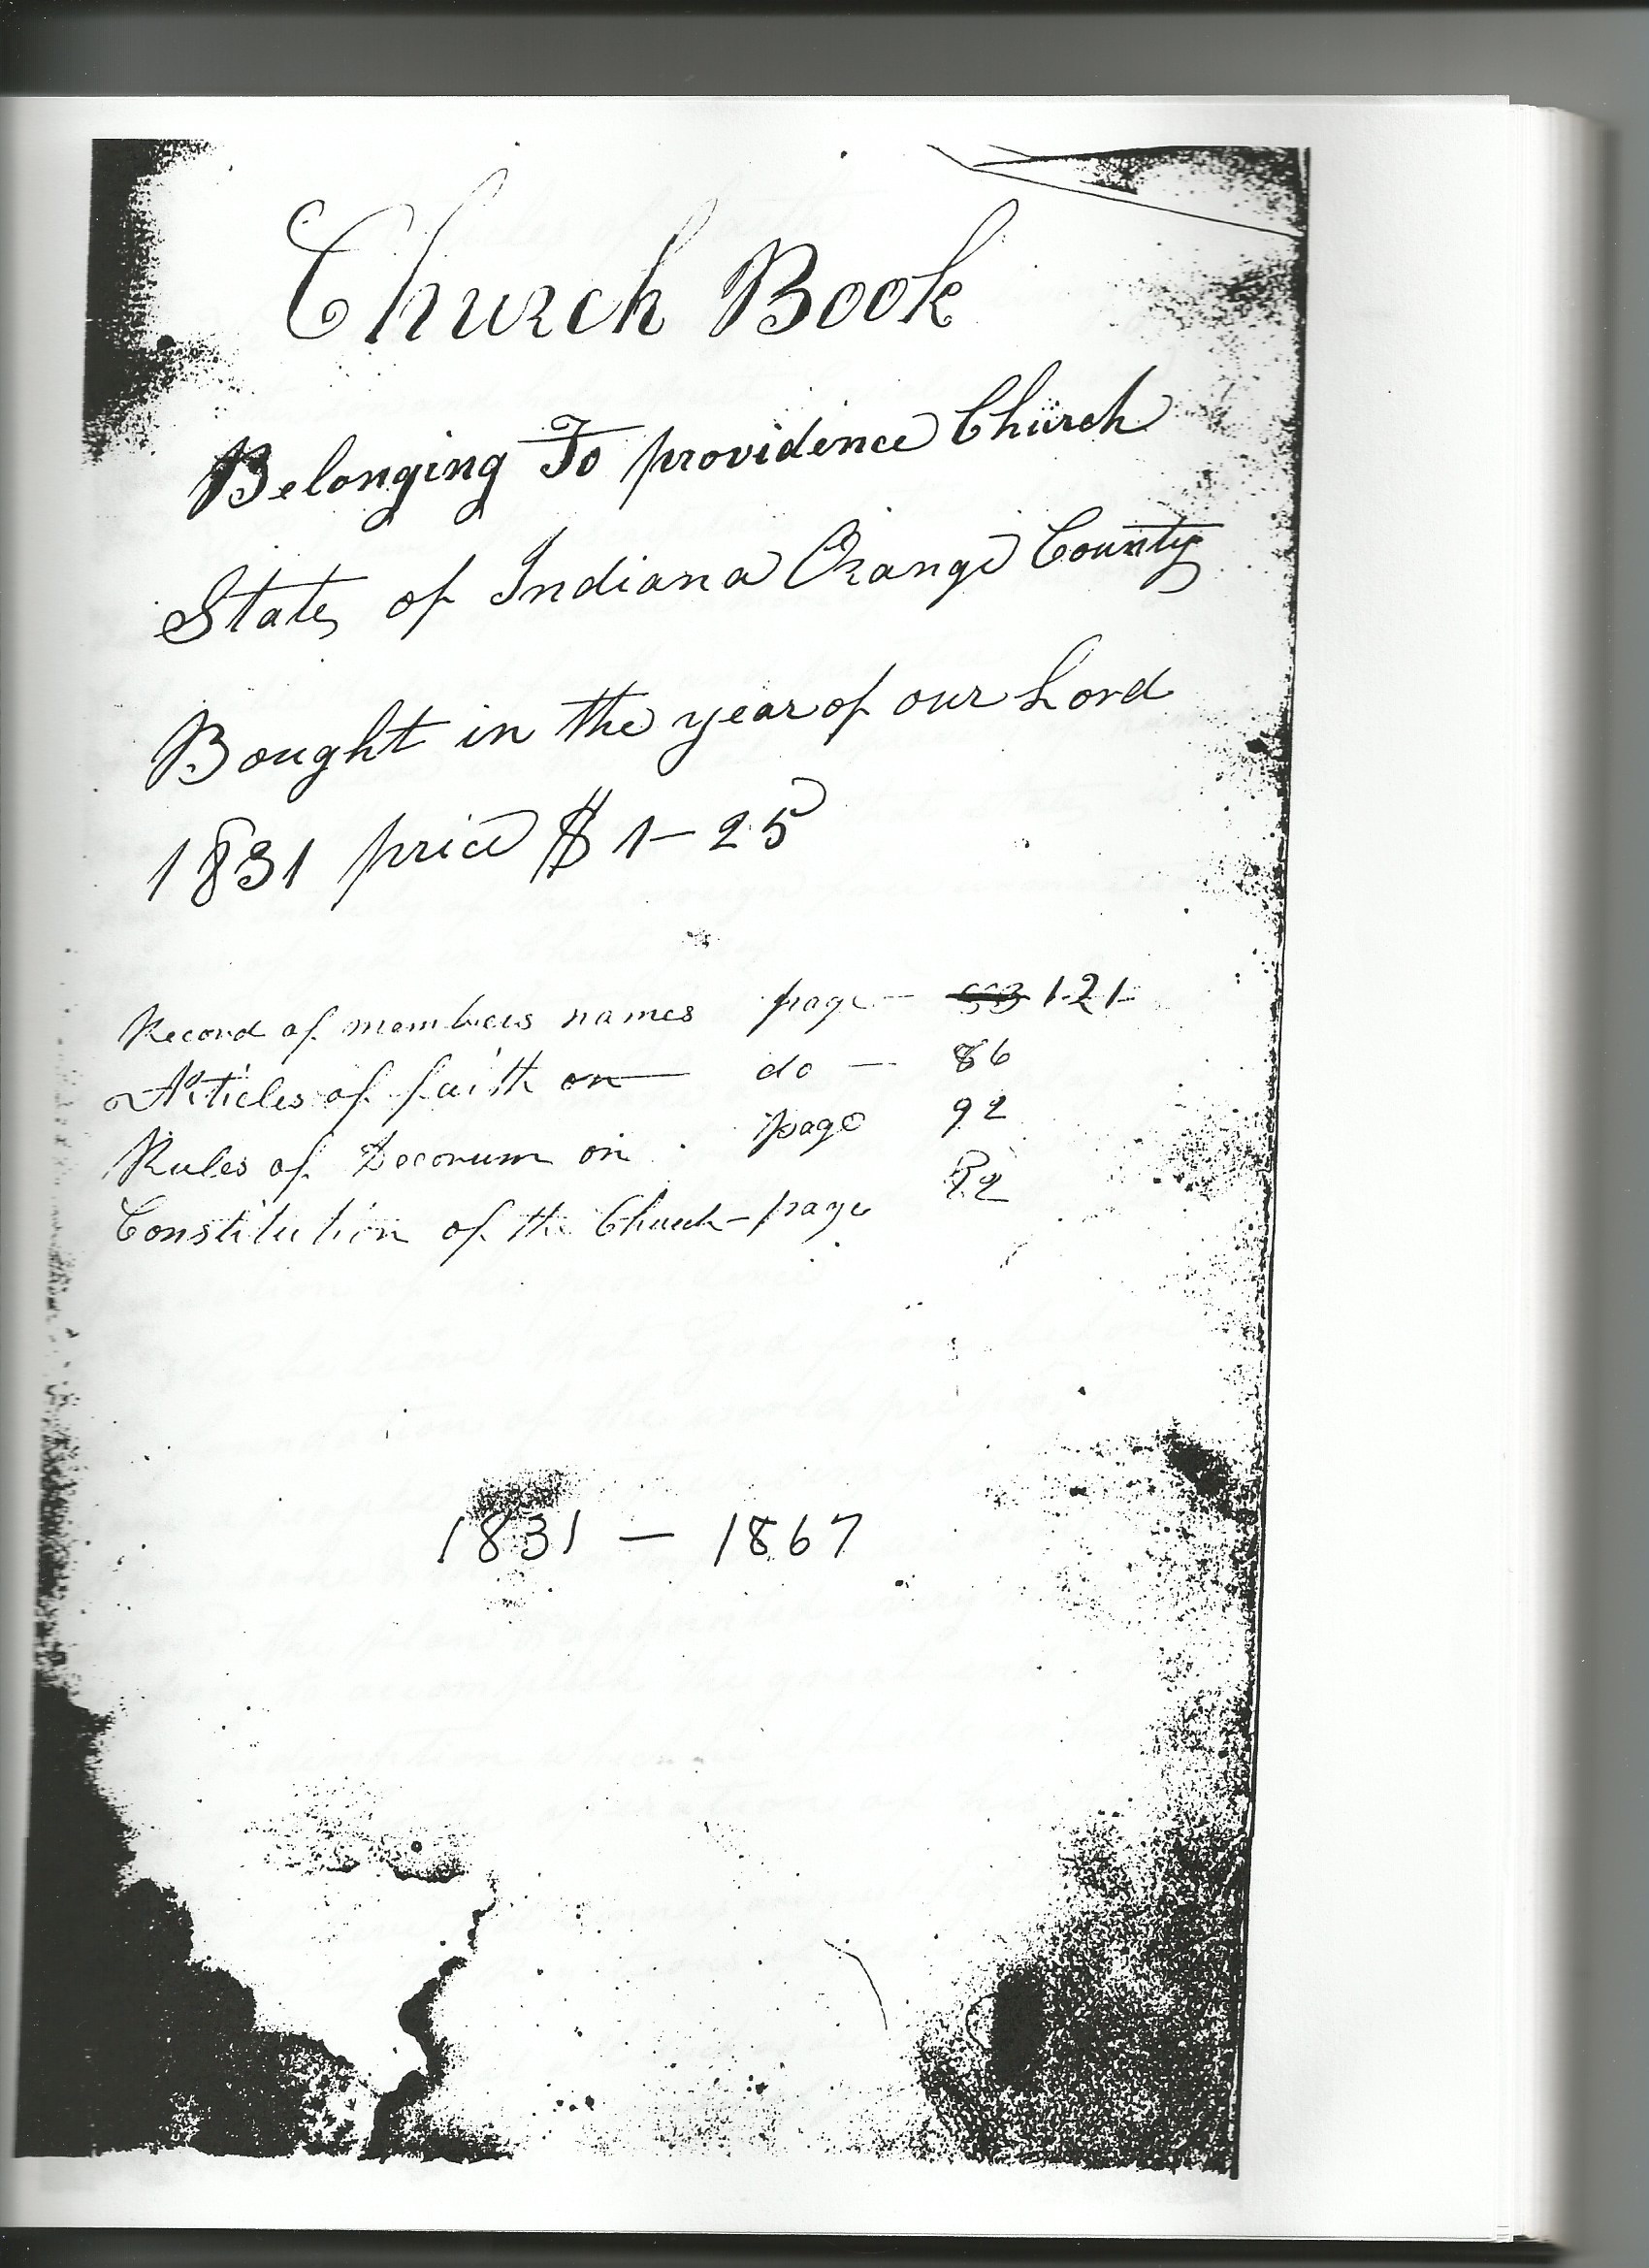 Church Book
Belonging To providence Church
State of Indiana Orange County
Bought in the year of our Lord
1831 price $ 1-25
Record of members names page — 121
Articles of faith on — do — 86
Rules of Decorum on page 92
Constitution of the Church - page
1831 — 1867